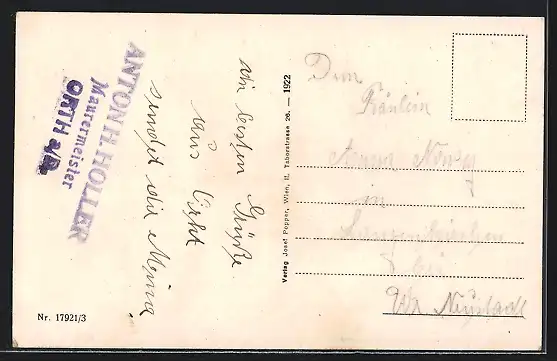 ANTON H. HOLLER
Maurermeister
ORTH a/D.
die besten Grüße
aus Orth
sendet die Mema.
Verlag Josef Popper, Wien, II. Taborstrasse 26. — 1922
Dem
Fräulein
Anna
in
bei
Wr. Neustadt
Nr. 17921/3